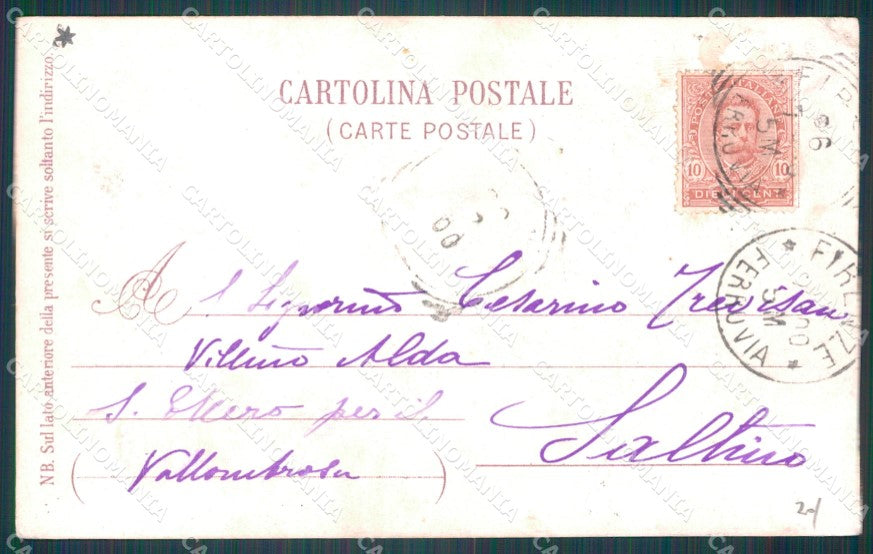 CARTOLINA POSTALE
(CARTE POSTALE)
NB. Sul lato anteriore della presente si scrive soltanto l'indirizzo.
POSTE ITALIANE
10 10
DIECI CENT.
FIRENZE
FERROVIA
5 M
FIRENZE
FERROVIA
00
5 M
00
Al Signorino Cesarino Trevisan
Villino Alda
S. Ellero per il
Saltino
(Vallombrosa)
20/
CARTOLINOMANIA